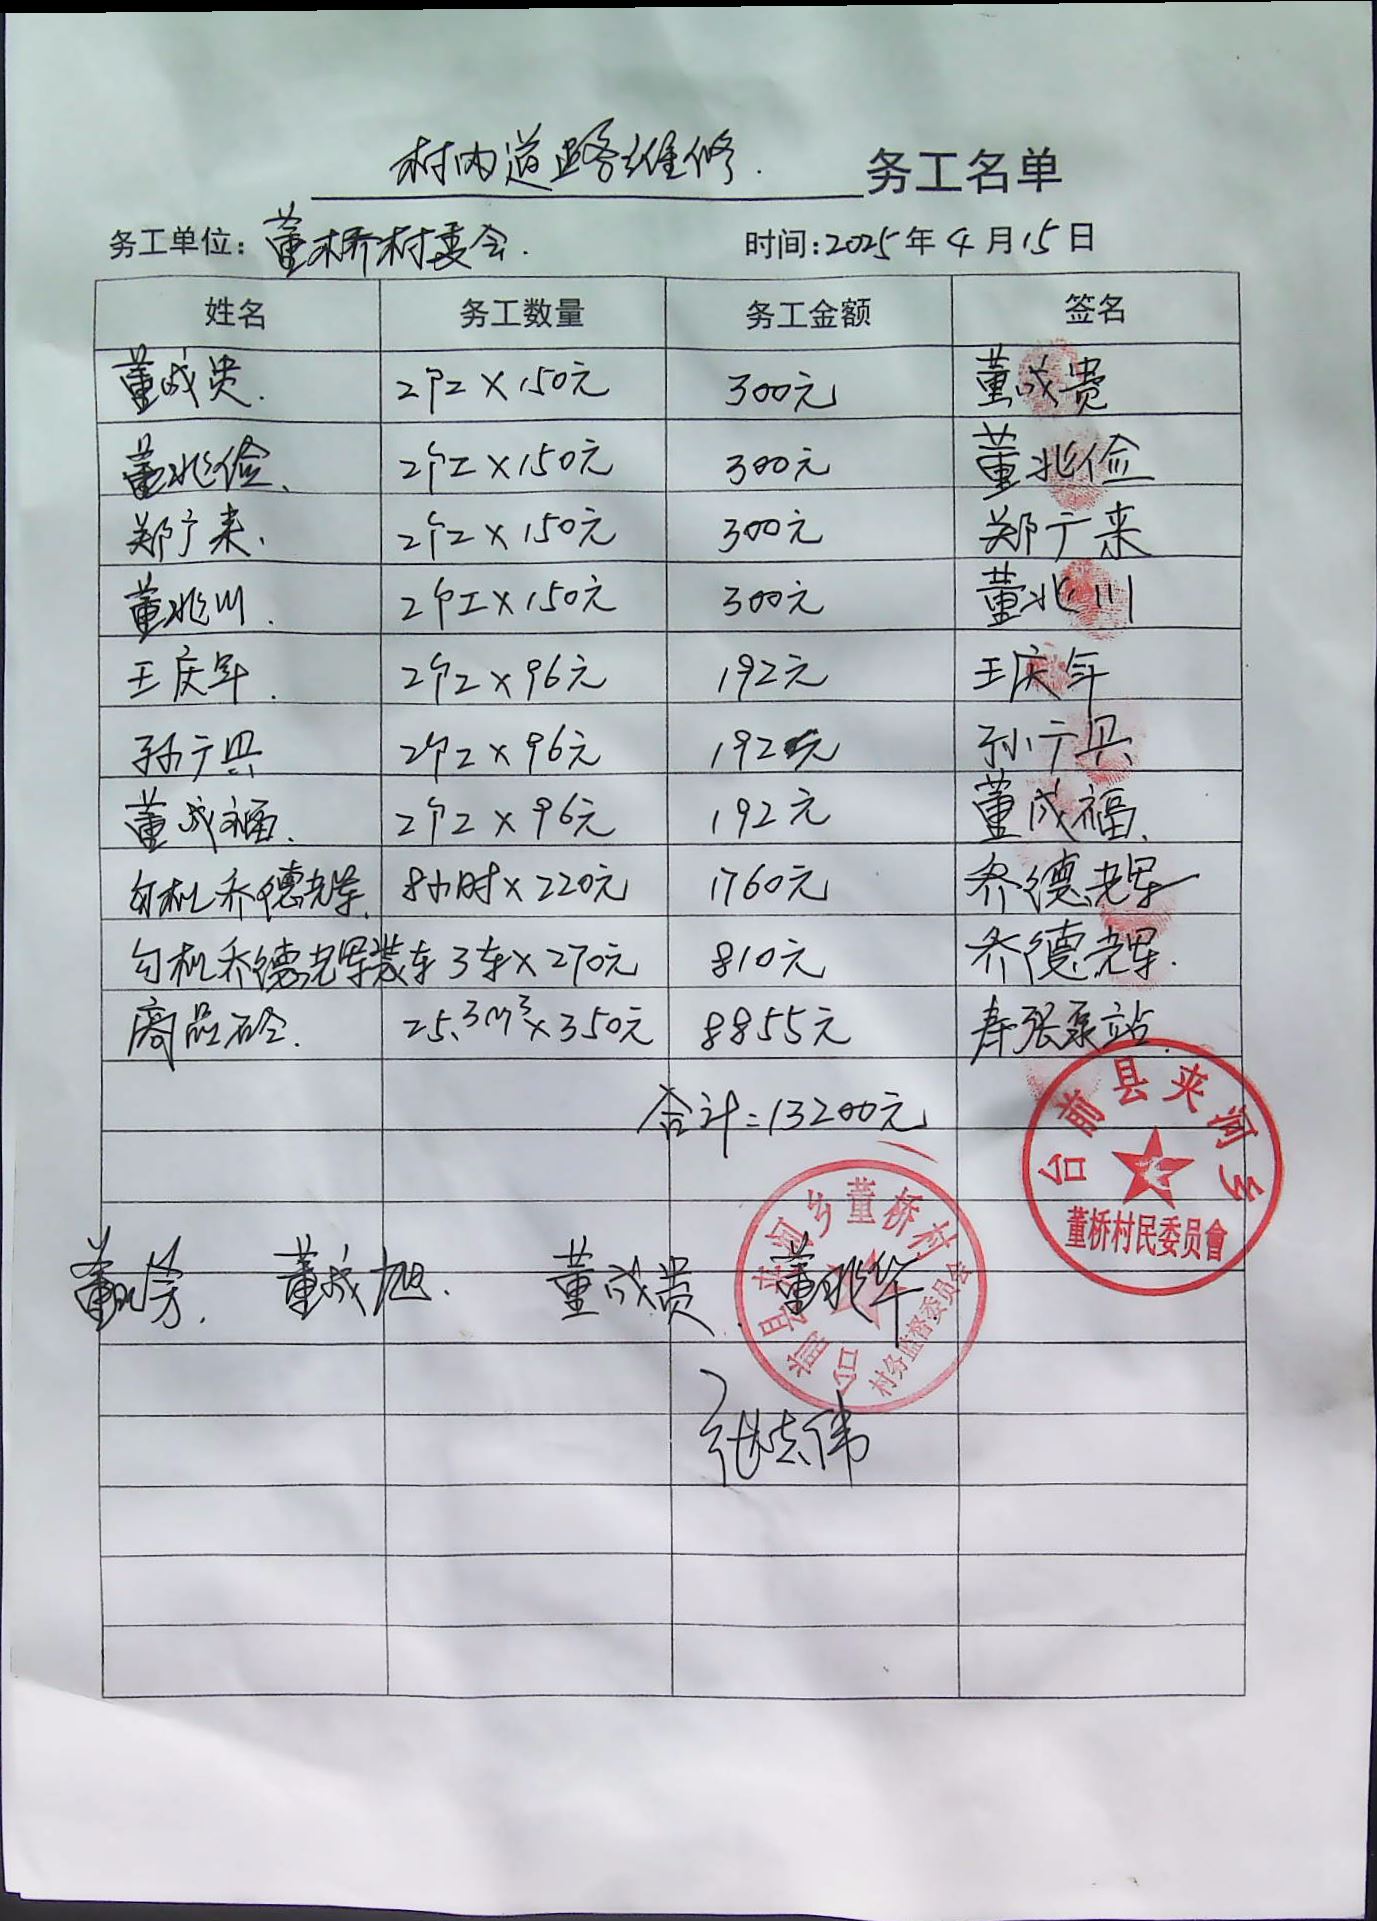 村内道路维修. 务工名单
务工单位: 董桥村委会. 时间:2025年4月15日
姓名 务工数量 务工金额 签名
董成贵. 2个工×150元 300元 董成贵
董兆俭. 2个工×150元 300元 董兆俭
郑广来. 2个工×150元 300元 郑广来
董兆川. 2个工×150元 300元 董兆川
王庆年. 2个工×96元 192元 王庆年
孙广兴 2个工×96元 192元 孙广兴
董成福. 2个工×96元 192元 董成福.
勾机乔德光军. 8小时×220元 1760元 乔德光军
勾机乔德光军装车 3车×270元 810元 乔德光军.
商品砼. 25.3m³×350元 8855元 寿张泵站.
合计=13200元
台前县夹河乡
董桥村民委员會
台前县夹河乡董桥村
村务监督委员会
董成旭. 董成贵. 董兆华
张志伟